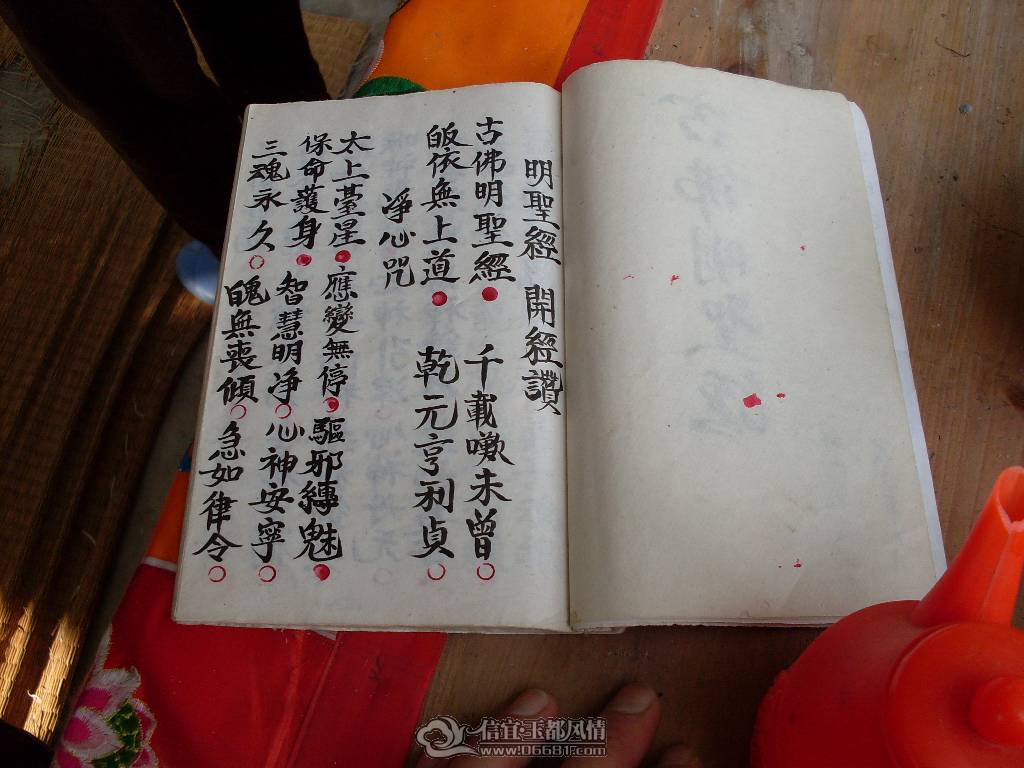 明聖經 開經讚
古佛明聖經 千載噋未曾
皈依無上道 乾元亨利貞
淨心咒
太上臺星 應變無停 驅邪縛魅
保命護身 智慧明淨 心神安寧
三魂永久 魄無喪傾 急如律令
信宜玉都风情
www.06681.com